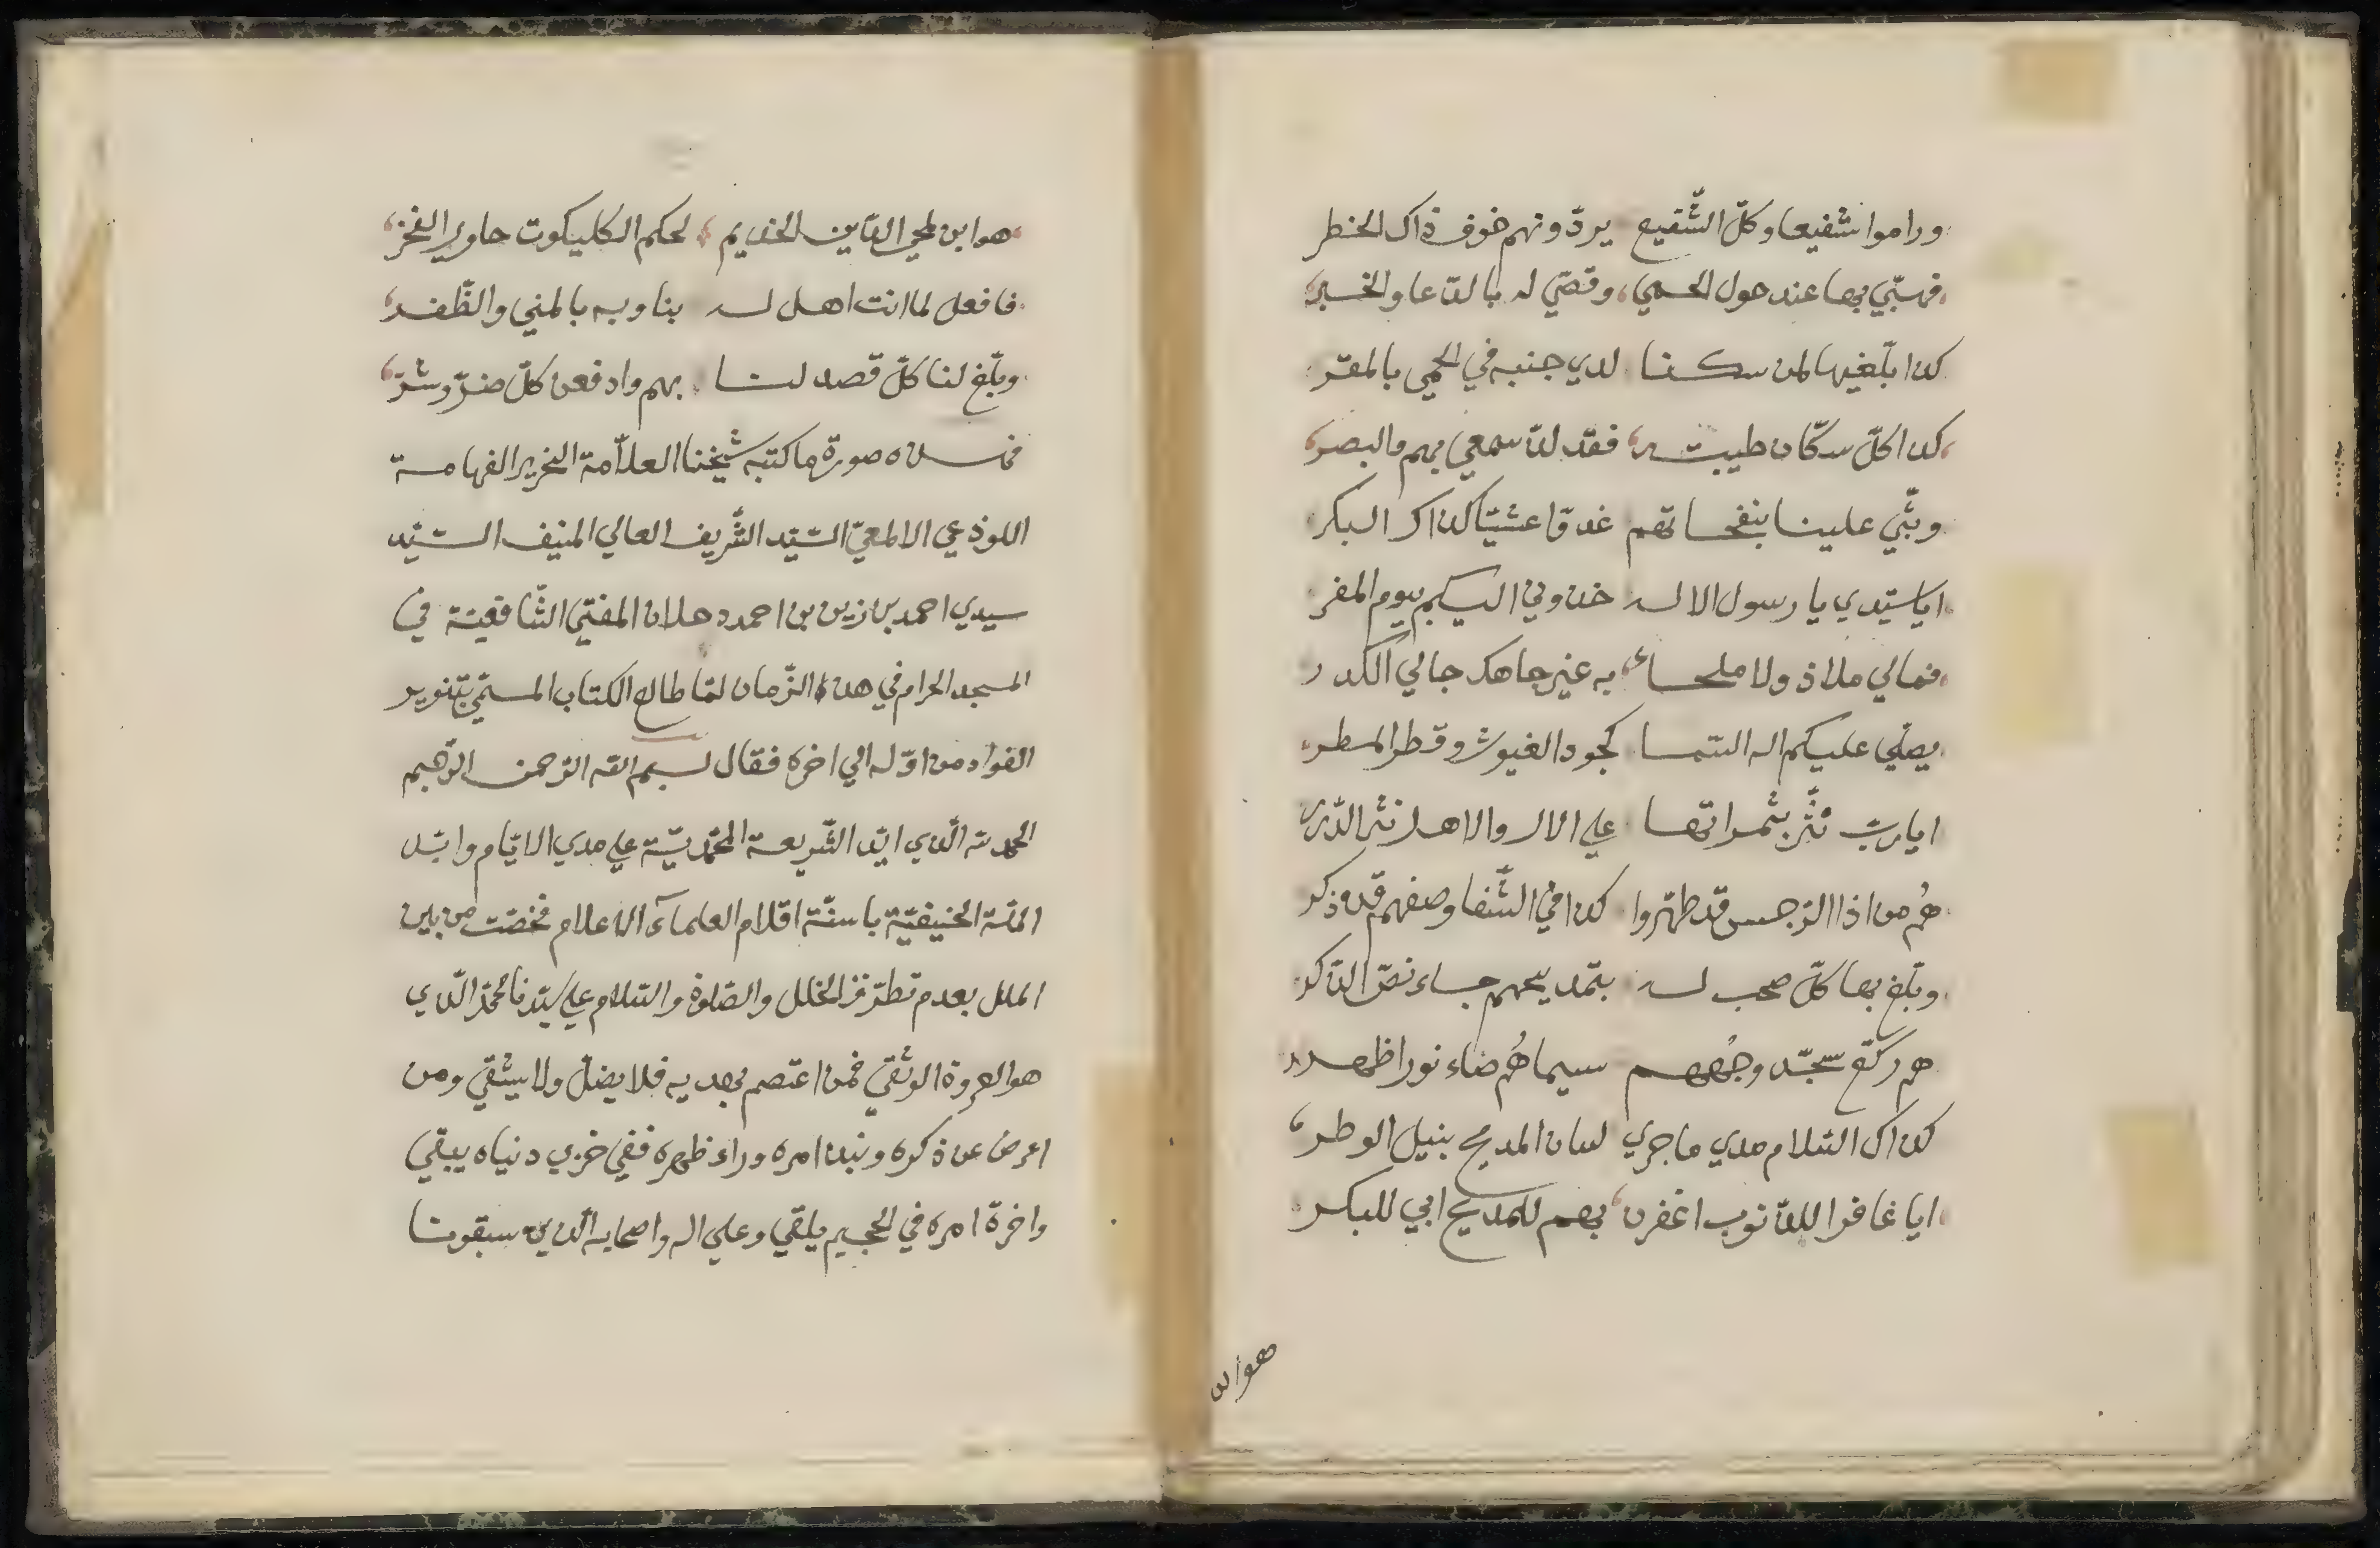 وراموا شفيعا وكلّ الشّفيع يردّونهم خوف ذاك الخطر
فهبّي بها عند حول الحمي، وقصّي له بالدّعا والخبر،
كذا بلّغيها لمن سكنا لدي جنبه في الحمى بالمقرّ
كذا كلّ سكّان طيبته، فقد لذّ سمعي بهم والبصر،
وبثّي علينا بنفحاتهم غدوّا عشيّا كذاك البكر
ايا سيّدي يا رسول الاله خذوني اليكم بيوم المفر
فمالي ملاذ ولا ملجاء، به غير جاهك جالي الكدر
يصلّي عليكم اله السّما كجود الغيوث وقطر المطر،
ايا ربّ نثّر بثمراتها علي الال والاهل نثر الدّرر
هُم من اذا الرّجس قد طهّروا كذا في الشّفا وصفهم قد ذكر
وبلّغ بها كلّ صحب له بتمديحهم جاء نصّ الذّكر
هم ركّع سجّد وجُههم سيماهُم ضاء نورا ظهر
كذاك السّلام مدي ما جري لسان المديح بنيل الوطر،
ايا غافرا للذّنوب اغفرن، بهم للمديح ابي للبكر
هوابن
هوابن لمحي الدّين الخديم، لحكم الكليكوت حاوي الفخر،
فافعل لما انت اهل له بنا وبه بالمني والظّفر،
وبلّغ لنا كلّ قصد لنا بهم وادفعن كلّ ضرّ وشرّ،
فهذه صورة ما كتبه شيخنا العلاّمة النحرير الفهامة
اللوذعي الالمعيّ السّيّد الشّريف العالي المنيف السّيّد
سيدي احمد بن زين بن احمد دحلان المفتي الشّافعيّة في
المسجد الحرام في هذا الزّمان لمّا طالع الكتاب المسمّي بتنوير
الفواد من اوّله الي اخره فقال بسم الله الرّحمن الرّحيم
الحمد لله الّذي ايّد الشّريعة المحمّديّة علي مدي الايّام وايّد
الملّة الحنيفيّة باسنّة اقلام العلمآء الاعلام فخصّت من بين
الملل بعدم تطرّق الخلل والصّلوة والسّلام علي سيّدنا محمّد الّذي
هو العروة الوثقي فمن اعتصم بهديه فلا يضلّ ولا يشقي ومن
اعرض عن ذكره ونبذ امره وراء ظهره ففي خزي دنياه يبقي
واخرة امره في الجحيم يلقي وعلي اله واصحابه الّذين سبقونا